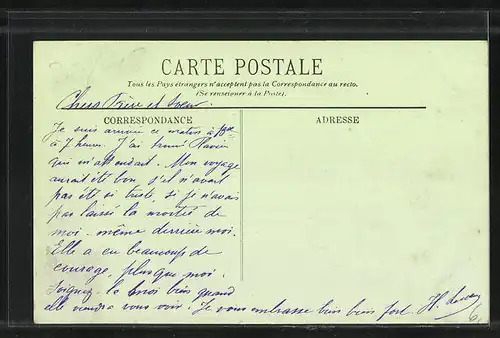 CARTE POSTALE
Tous les Pays étrangers n'acceptent pas la Correspondance au recto.
(Se renseigner à la Poste).
Chers Frère et Sœur
CORRESPONDANCE
ADRESSE
Je suis arrivée ce matin à
à 7 heures. J'ai trouvé
qui m'attendait. Mon voyage
aurait été bon s'il n'avait
pas été si triste, si je n'avais
pas laissé la moitié de
moi-même derrière moi.
Elle a eu beaucoup de
courage, plus que moi.
Soignez-la bien quand
elle viendra vous voir. Je vous embrasse bien bien fort. H.
6